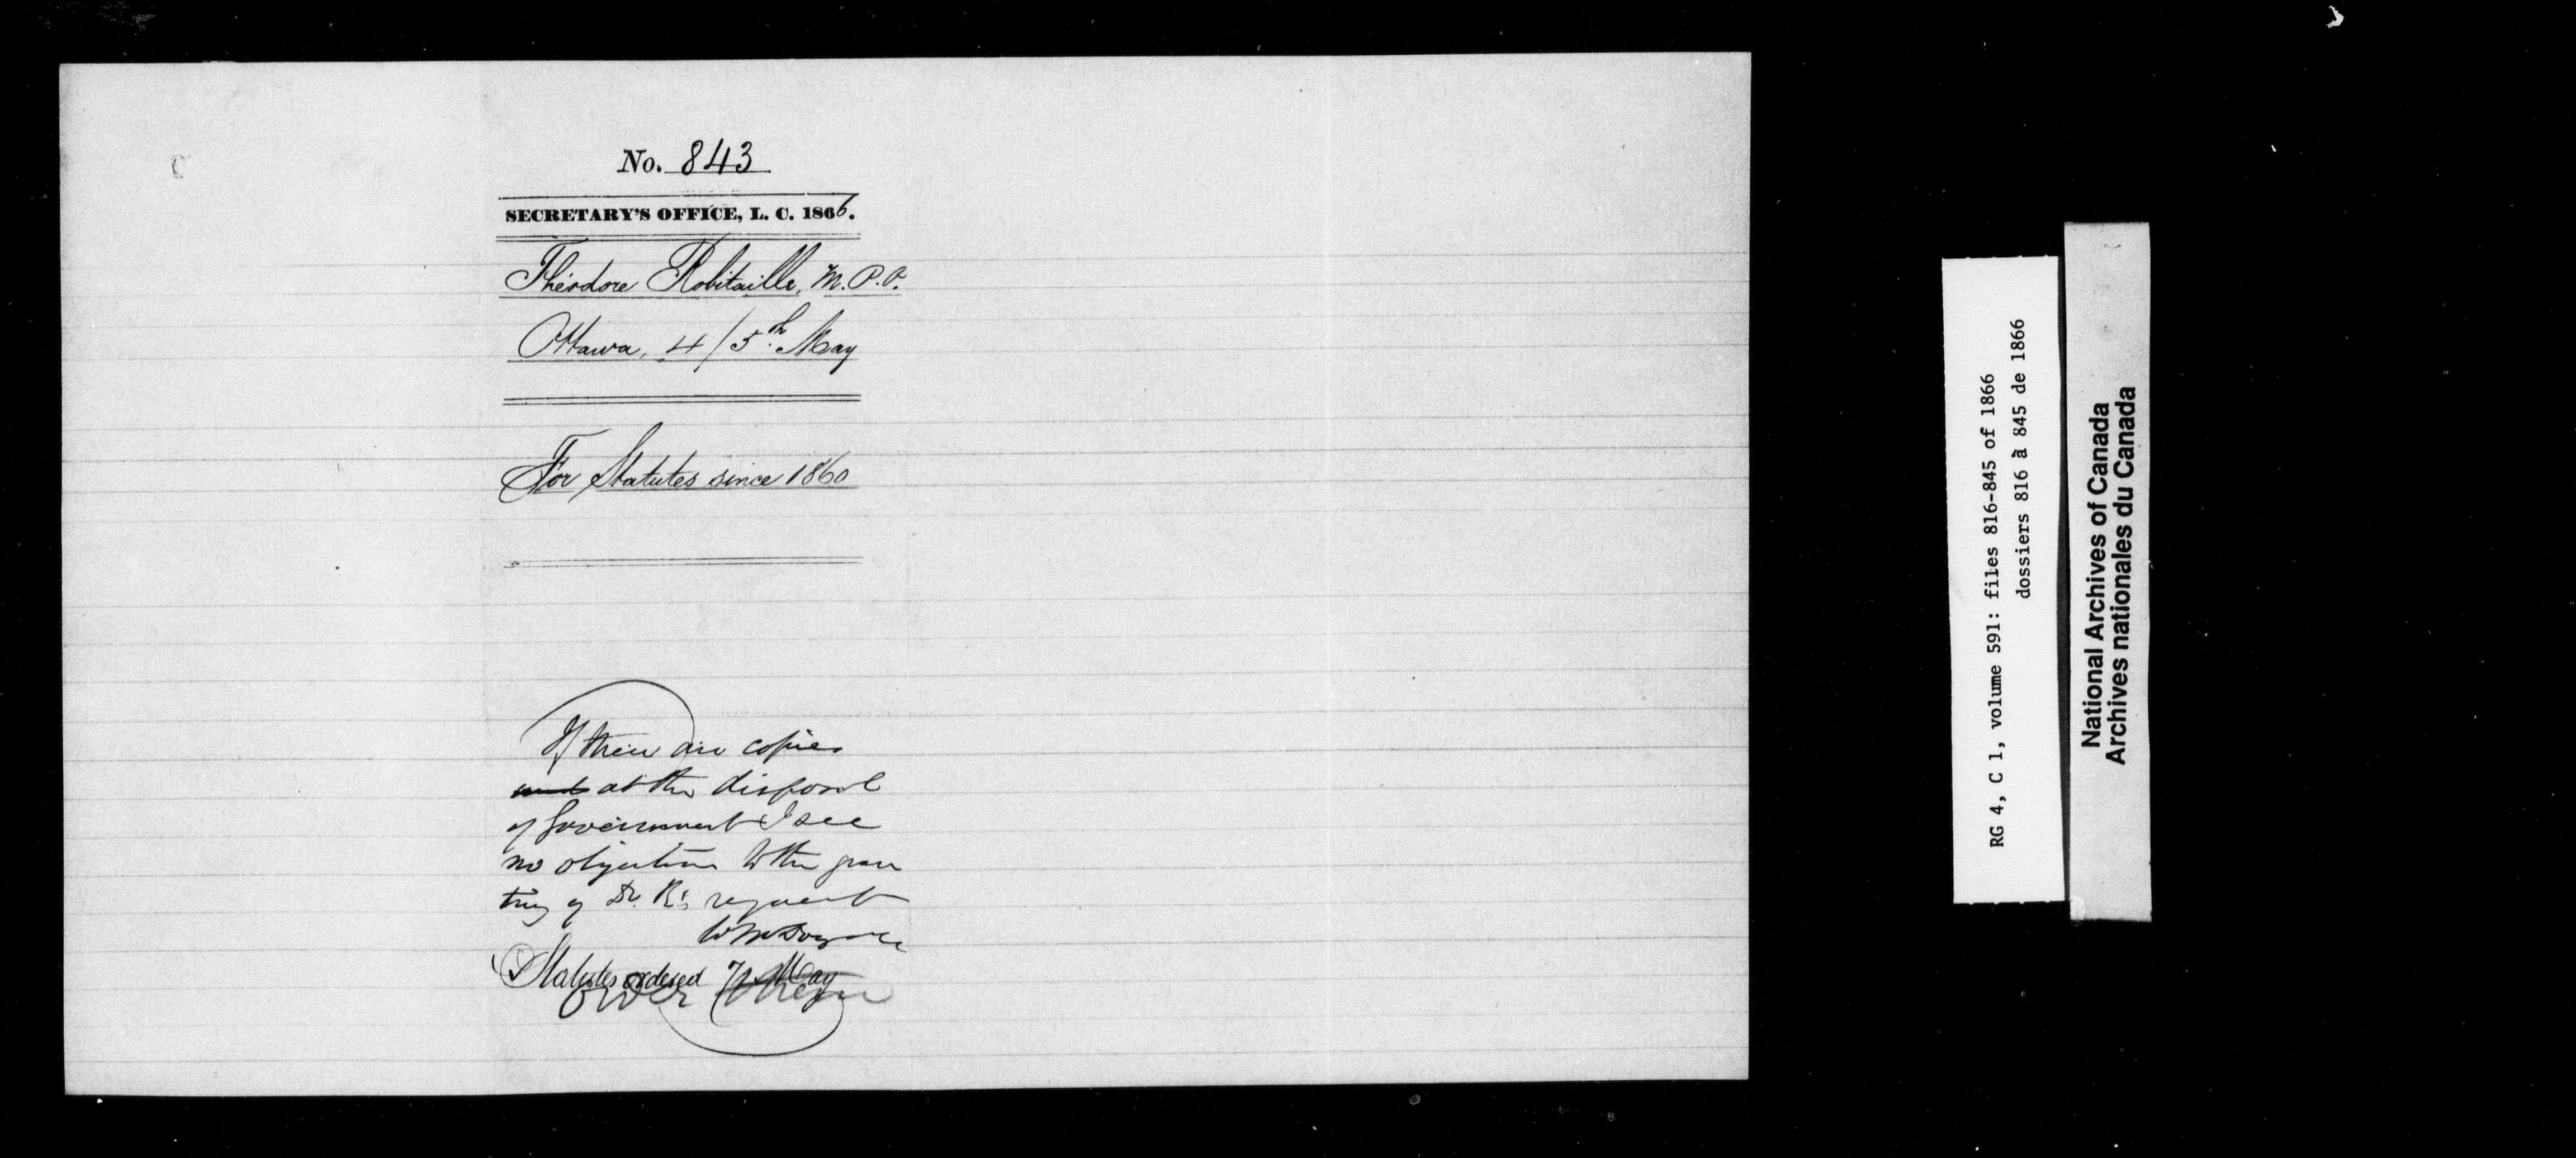 No. 843
SECRETARY'S OFFICE, L. C. 1866.
Théodore Robitaille, M.P.P.
Ottawa, 4/5th May
For Statutes since 1860
If there are copies
at the disposal
of Government I see
no objection to the gran
ting of Dr. R's request
Statutes ordered 7 May
order
RG 4, C 1, volume 591: files 816-845 of 1866
dossiers 816 à 845 de 1866
National Archives of Canada
Archives nationales du Canada